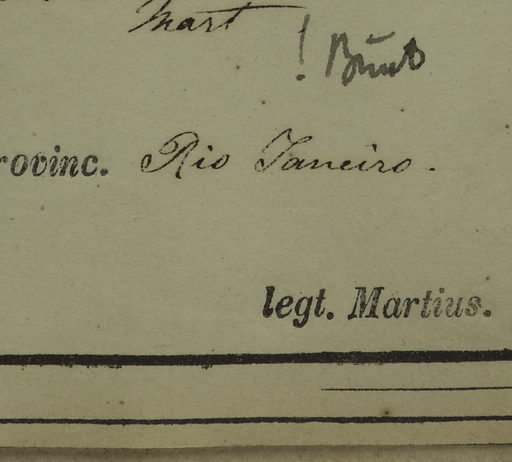 Mart
!
rovinc. Rio Janeiro.
legt. Martius.